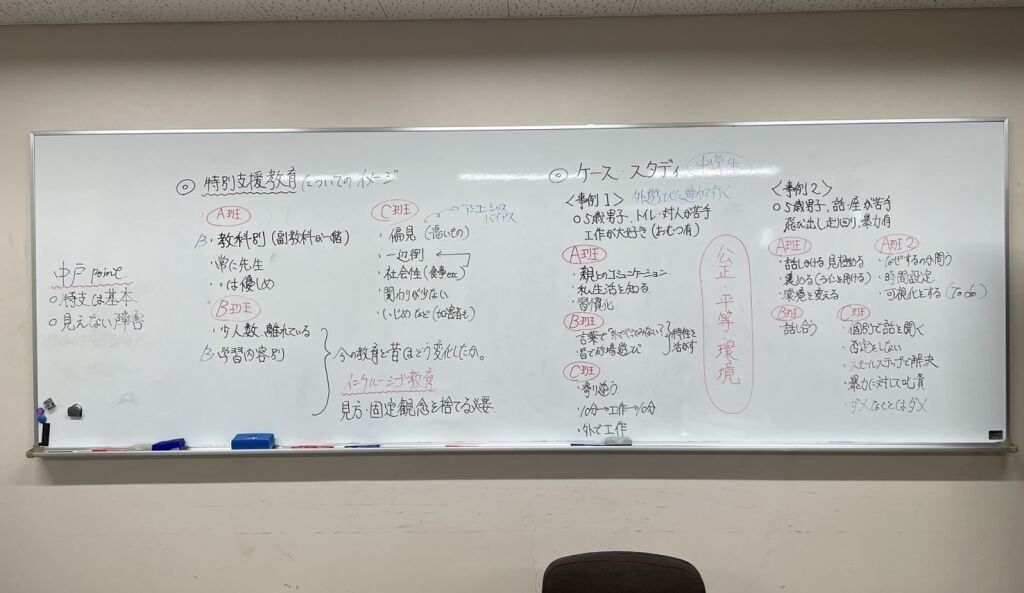 中戸 point
○特支は基本
○見えない障害
◎ 特別支援教育についてのイメージ
A班
・教科別 (副教科が一緒)
・常に先生
・〃は優しめ
B班
・少人数、離れている
・学習内容別
C班
アンコンシャス
バイアス
・偏見 (悪いもの)
・一辺倒
・社会性 (食事etc)
・関わりが少ない
・いじめなど (加害者も)
今の教育と昔はどう変化したか。
インクルーシブ教育
見方・固定観念を捨てる必要
◎ ケース・スタディ
<事例1>
○5歳男子、トイレ・対人が苦手
工作が大好き (おむつ有)
A班
・親とのコミュニケーション
・私生活を知る
・習慣化
B班
・皆で砂場遊び
特性を
活かす
C班
・寄り添う
・10分→工作→10分
・外で工作
公正・平等 環境
<事例2>
○5歳男子、話・座が苦手
飛び出し走り回り、暴力有
A班1
・話しかける 見極める
・環境を変える
A班2
・なぜするのか問う
・時間設定
・可視化とする (To do)
B班
・話し合う
C班
・個別で話を聞く
・否定をしない
・スモールステップで解決
・暴力に対して叱責
・ダメなことはダメ